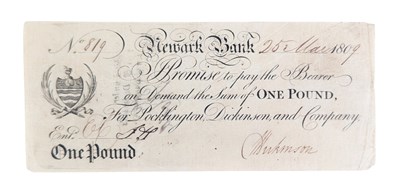 No. 819 Newark Bank 25 Mar 1809
I Promise to pay the Bearer
on Demand the Sum of ONE POUND,
For Pocklington, Dickinson, and Company.
Entd.
One Pound
Dickinson